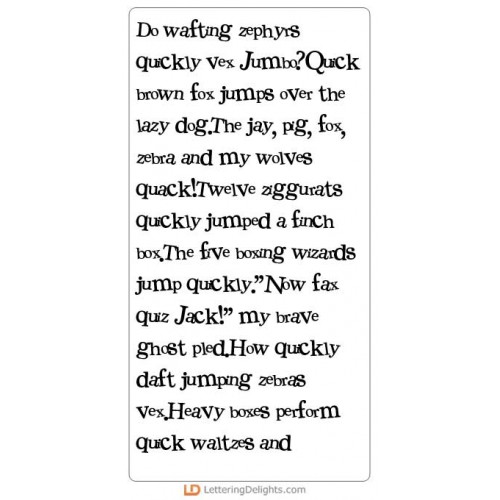 Do wafting zephyrs
quickly vex Jumbo?Quick
brown fox jumps over the
lazy dog.The jay, pig, fox,
zebra and my wolves
quack!Twelve ziggurats
quickly jumped a finch
box.The five boxing wizards
jump quickly."Now fax
quiz Jack!" my brave
ghost pled.How quickly
daft jumping zebras
vex.Heavy boxes perform
quick waltzes and
LD LetteringDelights.com